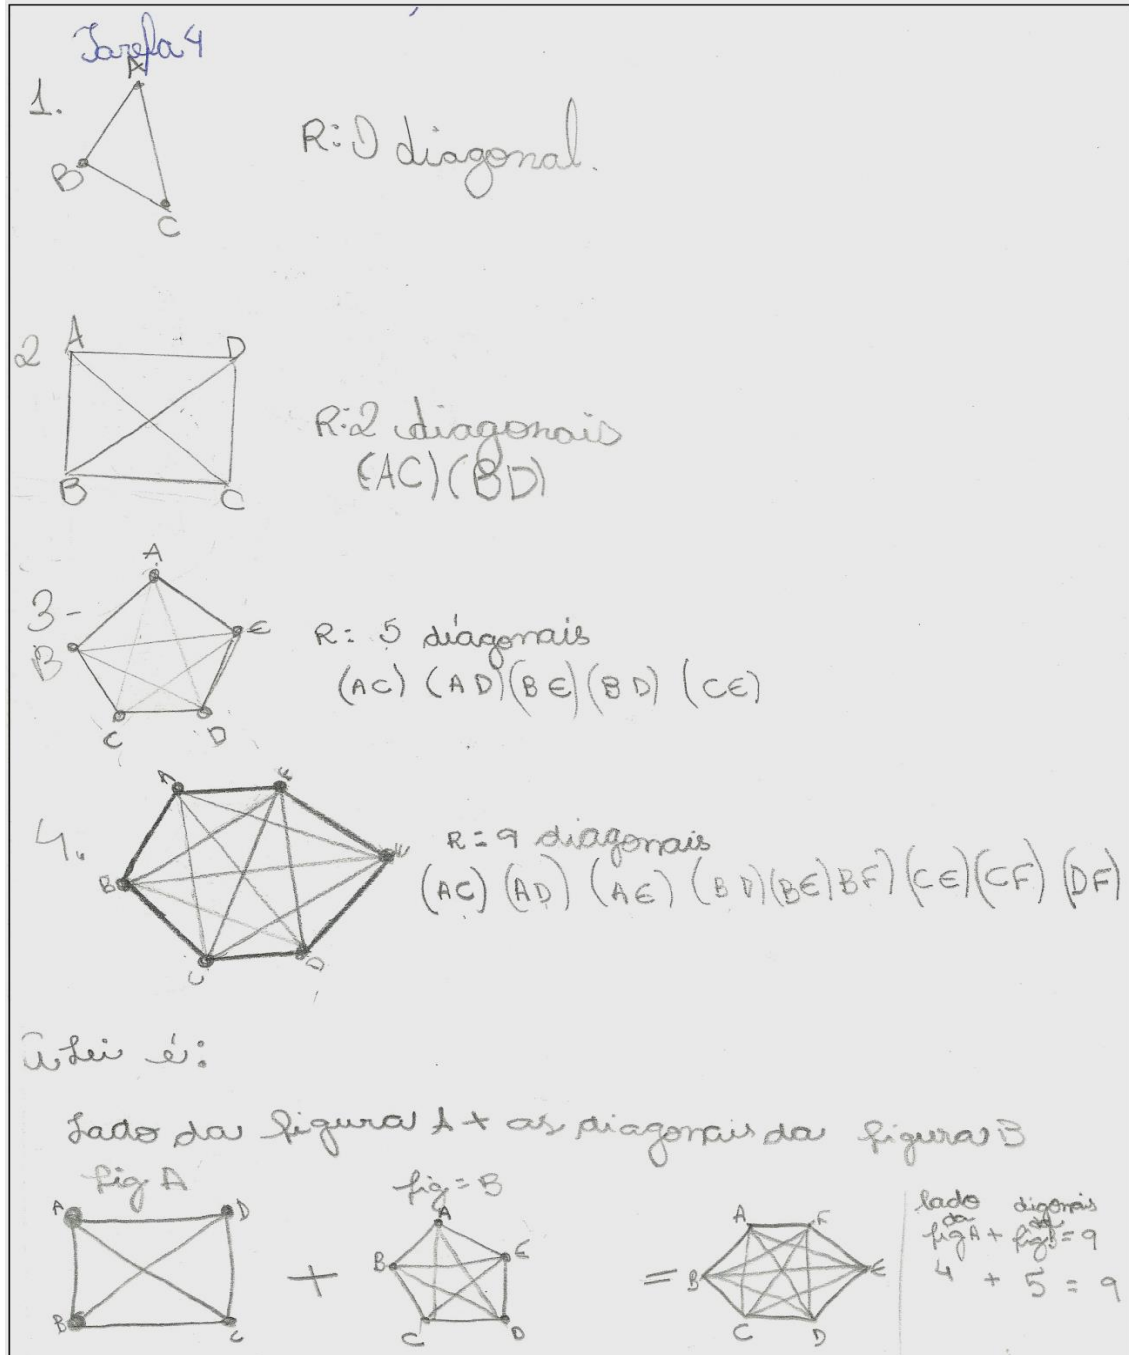 Tarefa 4
1.
A
B
C
R: 0 diagonal.
2
A
D
B
C
R: 2 diagonais
(AC) (BD)
3-
A
B
E
C
D
R: 5 diagonais
(AC) (AD) (BE) (BD) (CE)
4.
A
F
B
E
C
D
R = 9 diagonais
(AC) (AD) (AE) (BD) (BE) BF) (CE) (CF) (DF)
A Lei é:
Lado da figura A + as diagonais da figura B
fig A
fig = B
A
D
B
C
+
A
B
E
C
D
=
A
F
B
E
C
D
lado digonais
da da
fig A + fig B = 9
4 + 5 = 9